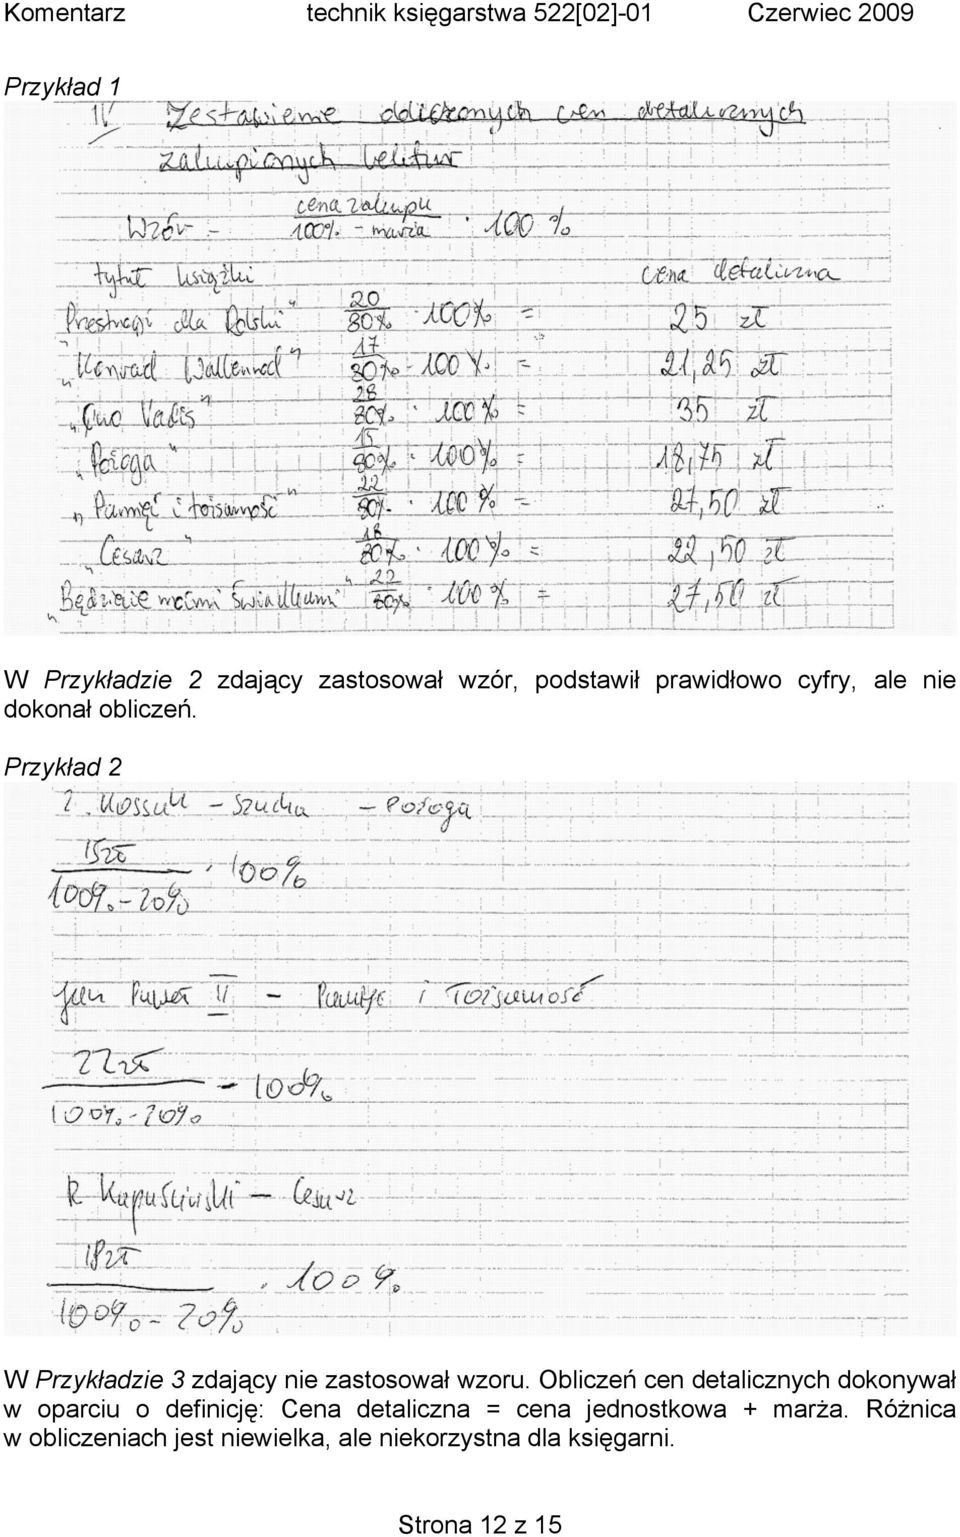 Komentarz technik księgarstwa 522[02]-01 Czerwiec 2009
Przykład 1
IV Zestawienie obliczonych cen detalicznych
zakupionych lektur
Wzór - cena zakupu / 100% - marża · 100 %
tytuł książki cena detaliczna
"Przestrogi dla Polski" 20/80% · 100% = 25 zł
"Konrad Wallenrod" 17/80% · 100% = 21,25 zł
"Quo Vadis" 28/80% · 100% = 35 zł
"Pożoga" 15/80% · 100% = 18,75 zł
"Pamięć i tożsamość" 22/80% · 100% = 27,50 zł
"Cesarz" 18/80% · 100% = 22,50 zł
"Będziecie moimi świadkami" 22/80% · 100% = 27,50 zł
W Przykładzie 2 zdający zastosował wzór, podstawił prawidłowo cyfry, ale nie
dokonał obliczeń.
Przykład 2
2. Kossak - Szucka - Pożoga
15zł
· 100%
100% - 20%
Jan Paweł II - Pamięć i Tożsamość
22zł
- 100%
100% - 20%
R Kapuściński - Cesarz
18zł
· 100%
100% - 20%
W Przykładzie 3 zdający nie zastosował wzoru. Obliczeń cen detalicznych dokonywał
w oparciu o definicję: Cena detaliczna = cena jednostkowa + marża. Różnica
w obliczeniach jest niewielka, ale niekorzystna dla księgarni.
Strona 12 z 15